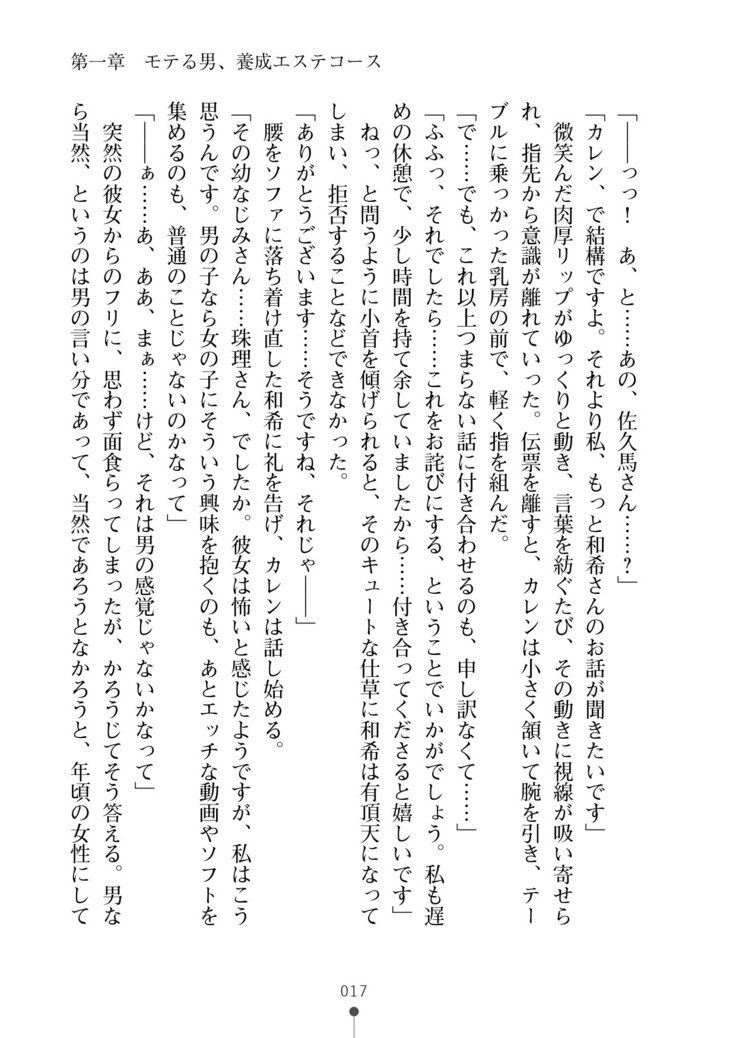 第一章　モテる男、養成エステコース
「――っっ！　あ、と……あの、佐久馬さん……？」
「カレン、で結構ですよ。それより私、もっと和希さんのお話が聞きたいです」
　微笑んだ肉厚リップがゆっくりと動き、言葉を紡ぐたび、その動きに視線が吸い寄せら
れ、指先から意識が離れていった。伝票を離すと、カレンは小さく頷いて腕を引き、テー
ブルに乗っかった乳房の前で、軽く指を組んだ。
「で……でも、これ以上つまらない話に付き合わせるのも、申し訳なくて……」
「ふふっ、それでしたら……これをお詫びにする、ということでいかがでしょう。私も遅
めの休憩で、少し時間を持て余していましたから……付き合ってくださると嬉しいです」
　ねっ、と問うように小首を傾げられると、そのキュートな仕草に和希は有頂天になって
しまい、拒否することなどできなかった。
「ありがとうございます……そうですね、それじゃ――」
　腰をソファに落ち着け直した和希に礼を告げ、カレンは話し始める。
「その幼なじみさん……珠理さん、でしたか。彼女は怖いと感じたようですが、私はこう
思うんです。男の子なら女の子にそういう興味を抱くのも、あとエッチな動画やソフトを
集めるのも、普通のことじゃないのかなって」
「――ぁ……あ、ああ、まぁ……けど、それは男の感覚じゃないかなって」
　突然の彼女からのフリに、思わず面食らってしまったが、かろうじてそう答える。男な
ら当然、というのは男の言い分であって、当然であろうとなかろうと、年頃の女性にして
017